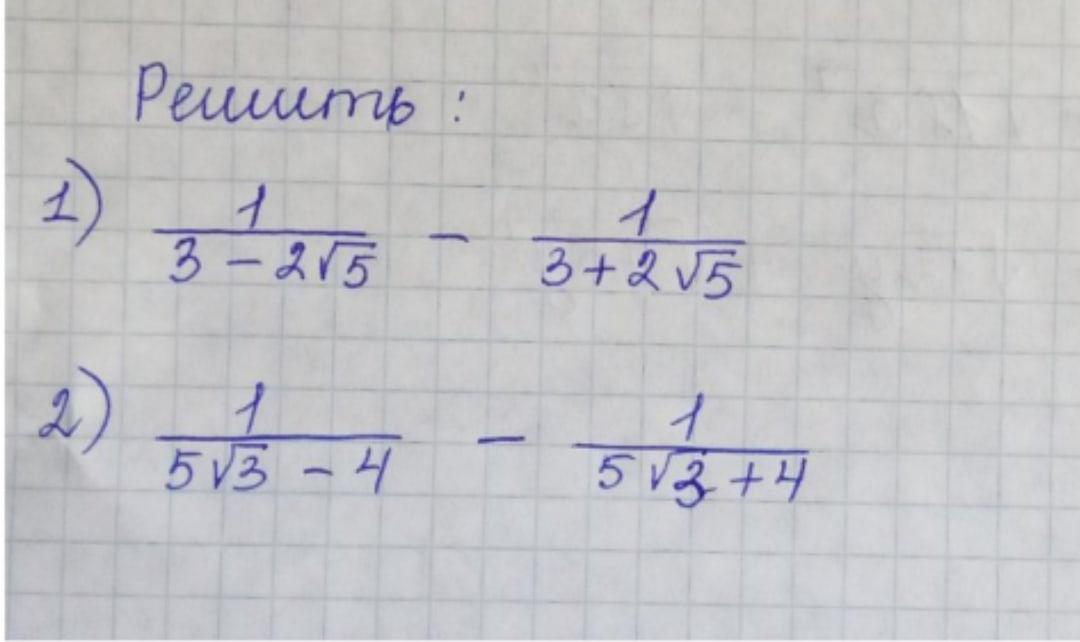 Решить :
1) 1/(3 - 2√5) - 1/(3 + 2√5)
2) 1/(5√3 - 4) - 1/(5√3 + 4)